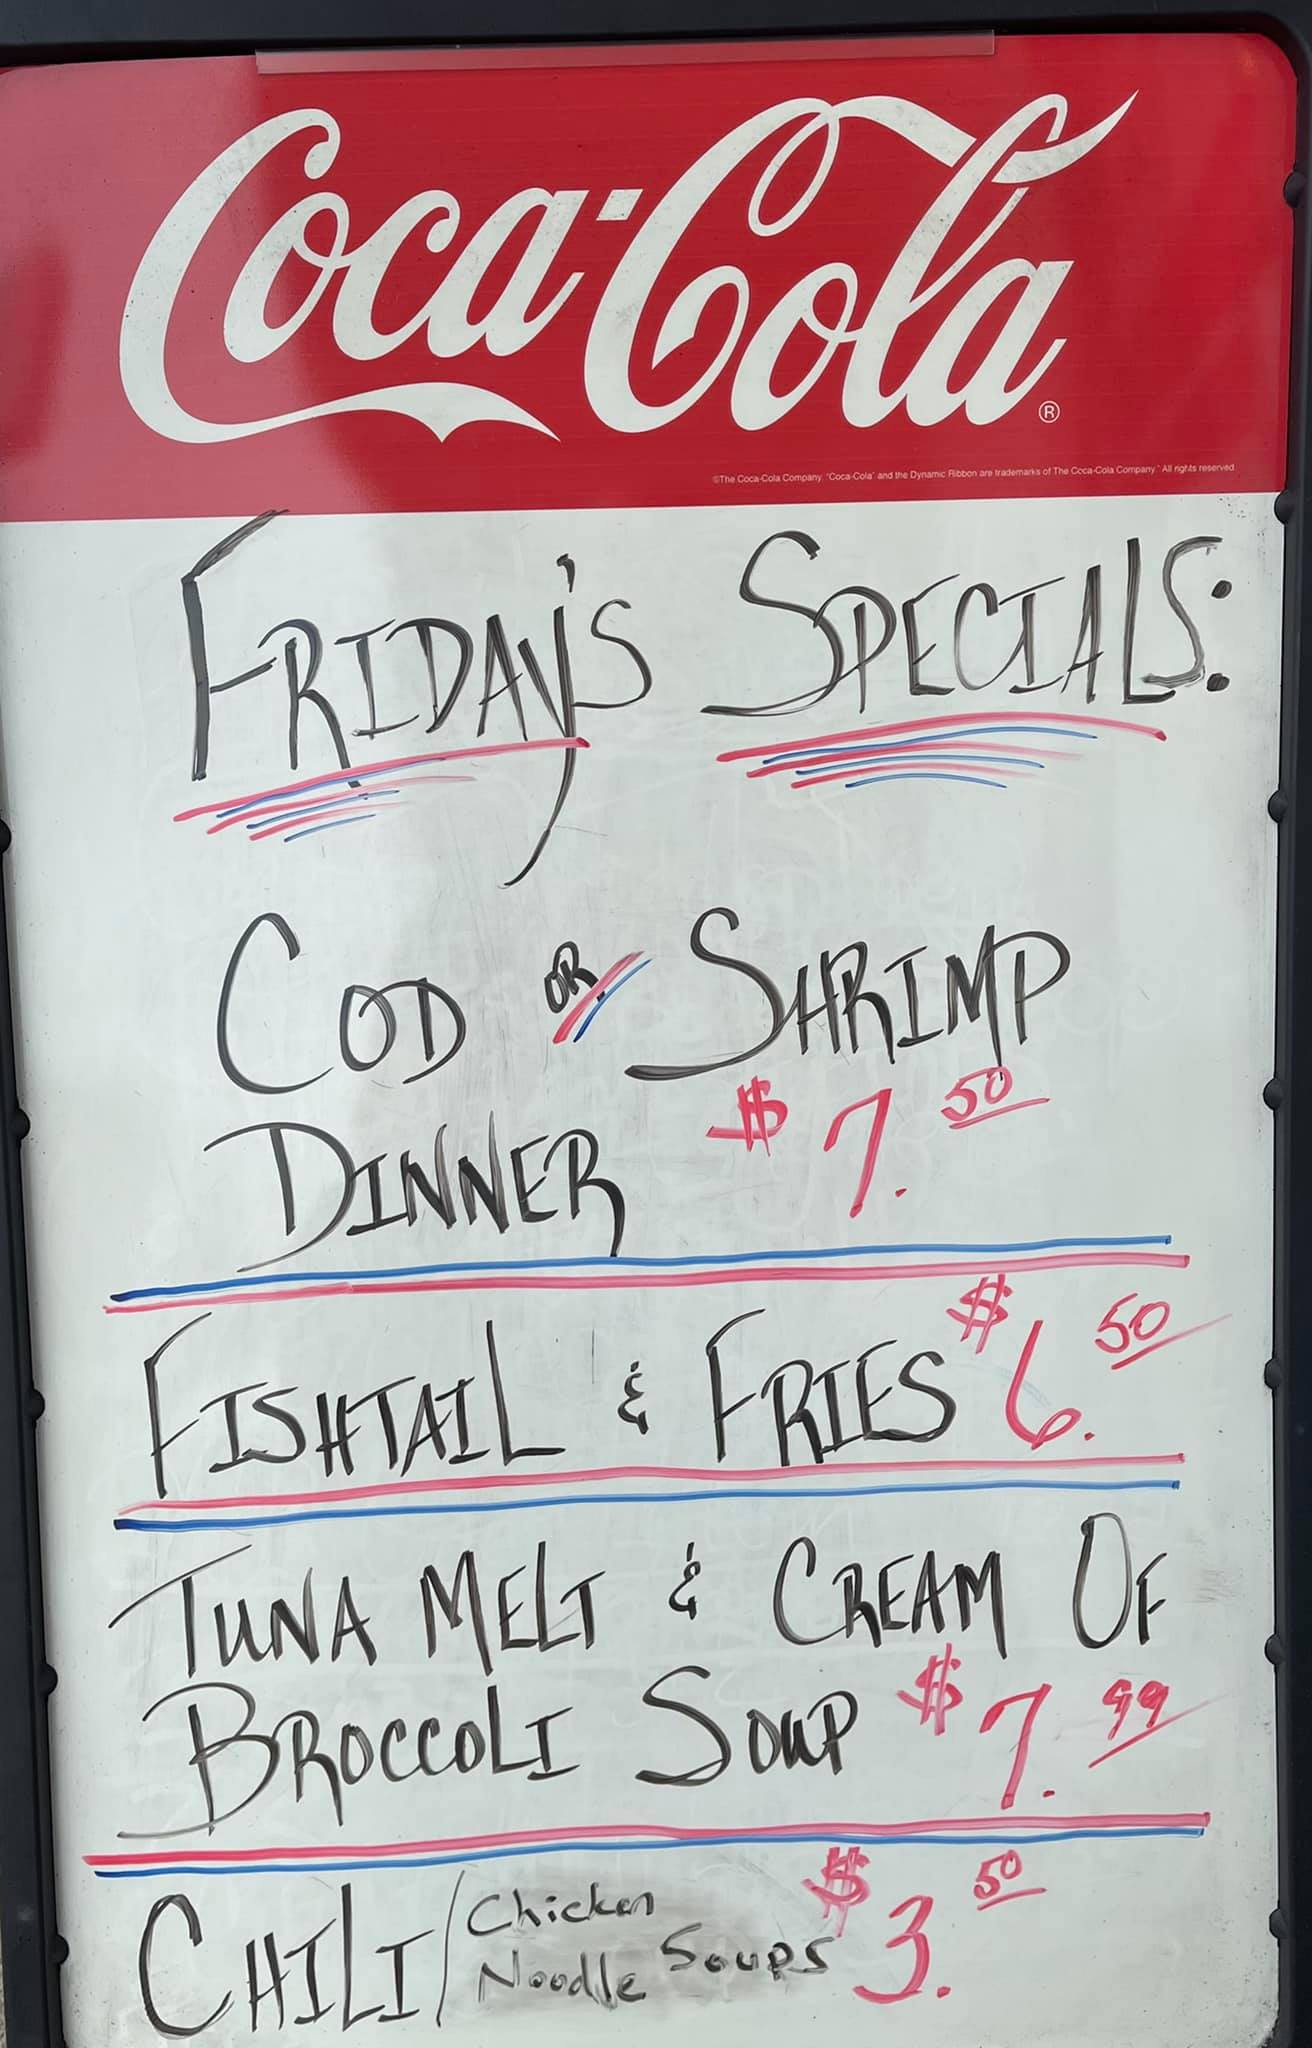 Coca-Cola®
©The Coca-Cola Company. "Coca-Cola" and the Dynamic Ribbon are trademarks of The Coca-Cola Company. All rights reserved
FRIDAy'S SPECIALS:
COD OR SHRIMP
DINNER $7.50
FISHTAIL & FRIES $6.50
TUNA MELT & CREAM OF
BROCCOLI SOUP $7.99
CHILI/Chicken Noodle Soups $3.50